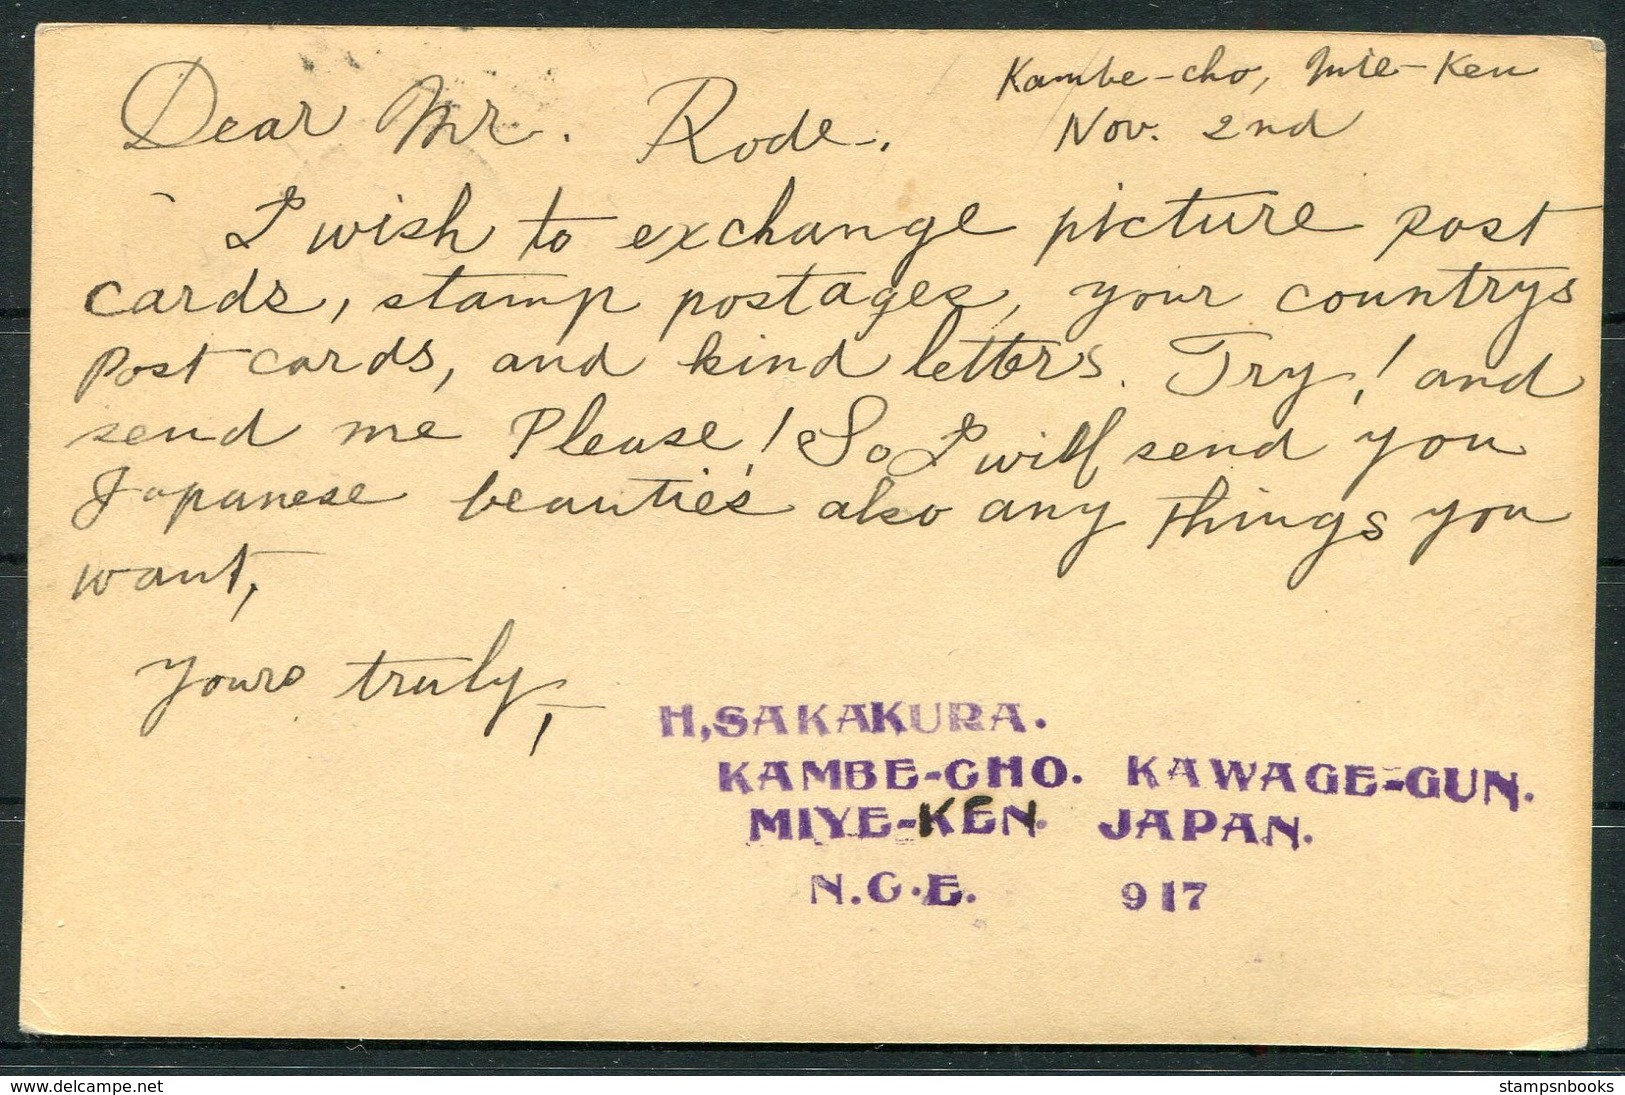 Kambe-cho, Mie-Ken
Nov. 2nd
Dear Mr. Rode.
I wish to exchange picture post
cards, stamp postages, your countrys
post cards, and kind letters. Try! and
send me Please! So I will send you
Japanese beauties also any things you
want,
Yours truly,
H,SAKAKURA.
KAMBE-CHO. KAWAGE-GUN.
MIYE-KEN. JAPAN.
N.C.E. 917
delcampe.net
stampsnbooks